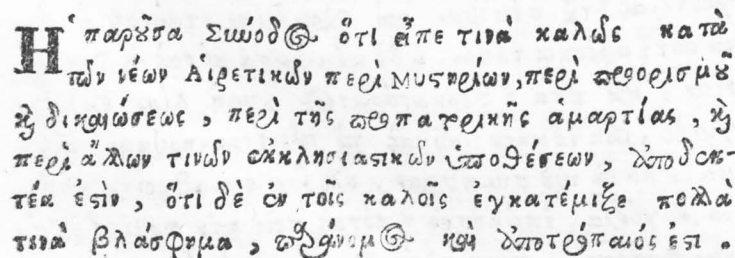 Ἡ παροῦσα Σύνοδος ὅτι εἶπε τινὰ καλῶς κατὰ
τῶν νέων Αἱρετικῶν περὶ Μυστηρίων, περὶ προορισμοῦ
καὶ δικαιώσεως, περὶ τῆς προπατρικῆς ἁμαρτίας, καὶ
περὶ ἄλλων τινῶν ἐκκλησιαστικῶν ὑποθέσεων, ἀποδεκ-
τέα ἐστὶν, ὅτι δὲ ἐν τοῖς καλοῖς ἐγκατέμιξε πολλὰ
τινὰ βλάσφημα, παράνομος καὶ ἀποτρόπαιός ἐστι.